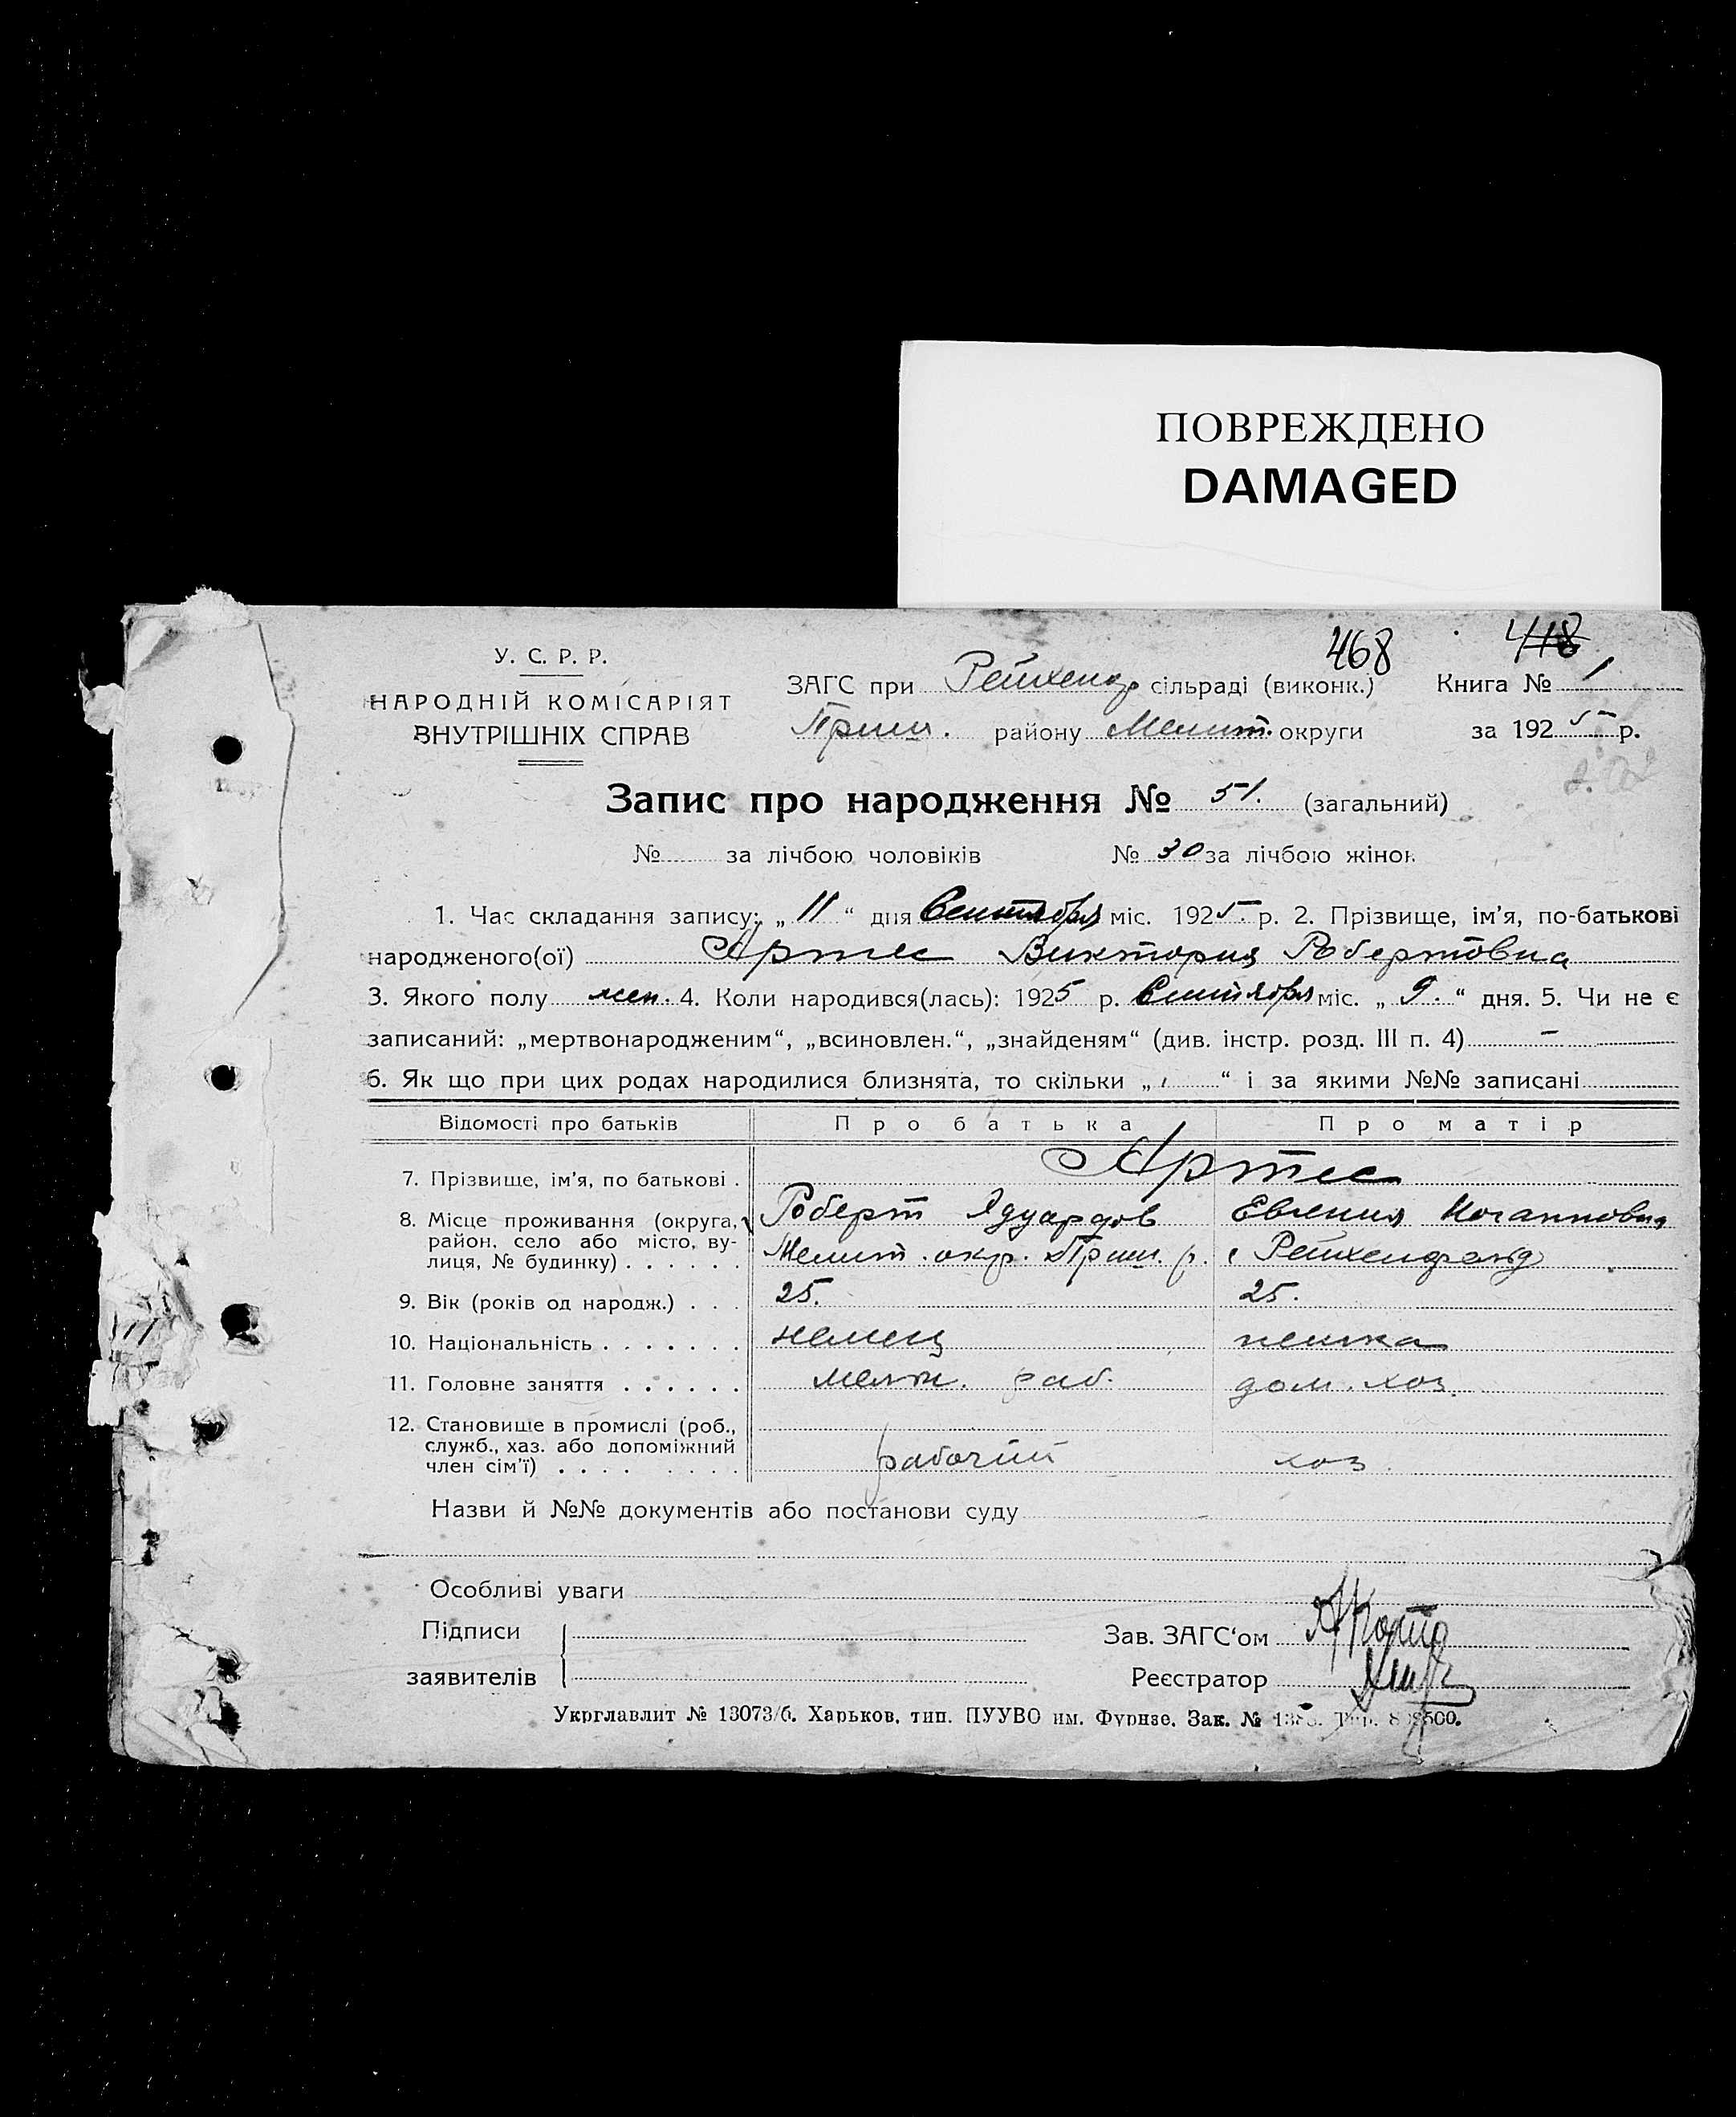 ПОВРЕЖДЕНО
DAMAGED
468 418
У. С. Р. Р.
НАРОДНІЙ КОМІСАРІЯТ
ВНУТРІШНІХ СПРАВ
ЗАГС при Рейхенф сільраді (виконк.) Книга № 1
Приш. району Мелит. округи за 1925 р.
Запис про народження № 51. (загальний)
№ за лічбою чоловіків № 30 за лічбою жінок
1. Час складання запису: „ 11 “ дня Сентября міс. 1925. р. 2. Прізвище, ім'я, по-батькові
народженого(ої) Артес Виктория Робертовна
3. Якого полу жен. 4. Коли народився(лась): 1925 р. Сентября міс. „ 9. “ дня. 5. Чи не є
записаний: „мертвонародженим“, „всиновлен.“, „знайденям“ (див. інстр. розд. III п. 4) –
6. Як що при цих родах народилися близнята, то скільки „ “ і за якими №№ записані
Відомості про батьків Про батька Про матір
7. Прізвище, ім'я, по батькові . Артес
8. Місце проживання (округа, Роберт Эдуардов Евгения Иоганновна
район, село або місто, ву- Мелит. окр. Приш. р. с Рейхенфельд
лиця, № будинку) . . . . . .
9. Вік (років од народж.) . . . 25. 25.
10. Національність . . . . . . . немец немка
11. Головне заняття . . . . . . раб. дом. хоз.
12. Становище в промислі (роб.,
служб., хаз. або допоміжний
член сім'ї) . . . . . . . . рабочий хоз.
Назви й №№ документів або постанови суду
Особливі уваги
Підписи
заявителів
Зав. ЗАГС‘ом
Реєстратор
Укрглавлит № 13073/б. Харьков, тип. ПУУВО им. Фрунзе. Зак. №